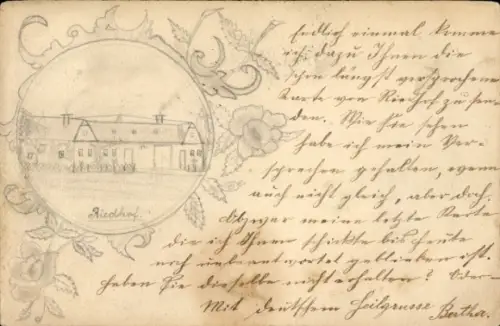 Endlich einmal komme
ich dazu Ihnen die
schon längst versprochene
Karte von Riedhof zu sen-
den. Wie Sie sehen
habe ich mein Ver-
sprechen gehalten, wenn
auch nicht gleich, aber doch.
Obzwar meine letzte Karte
die ich Ihnen schickte bis heute
noch unbeantwortet geblieben ist.
Haben Sie dieselbe nicht erhalten? Oder
Mit deutschem Heilgrusse Bertha.
Riedhof.